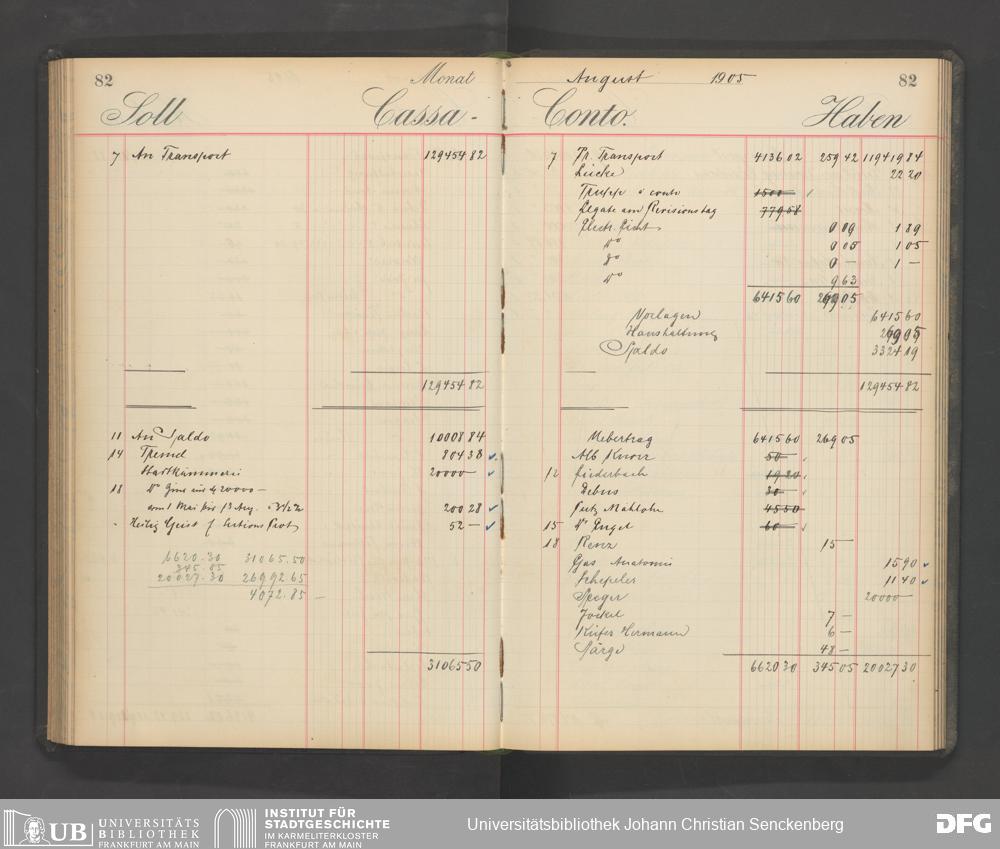 82
Monat
Soll
Cassa-
7 An Transport 129454 82
129454 82
11 An Saldo 10008 84
14 Fremd 804 38
Stadtkämmerei 20000 —
18
200 28
Heilig Geist f. 52 —
6620.30 31065.50
345.05
20027.30 26992 65
4072.85 —
31065 50
August 1905
82
Conto.
Haben
7 Pr. Transport 4136 02 259 42 119419 84
Lücke 22 20
à conto 1500 —
am Revisionstag 779 58
Electr. Licht 0 09 1 89
do 0 05 1 05
do 0 — 1 —
do 9 63
6415 60 269 05
Vorlagen 6415 60
Haushaltung 269 05
Saldo 3324 19
129454 82
Uebertrag 6415 60 269 05
Alb Knorz 50 —
12 19 20
Debus 30 —
45 50
15 Dr Engel 60 —
18 Renz 15 —
Gas Anatomie 15 90
Schepeler 11 40
20000 —
Jockel 7 —
Küfer Hermann 6 —
Särge 48 —
6620 30 345 05 20027 30
UB UNIVERSITÄTS
BIBLIOTHEK
FRANKFURT AM MAIN
INSTITUT FÜR
STADTGESCHICHTE
IM KARMELITERKLOSTER
FRANKFURT AM MAIN
Universitätsbibliothek Johann Christian Senckenberg
DFG